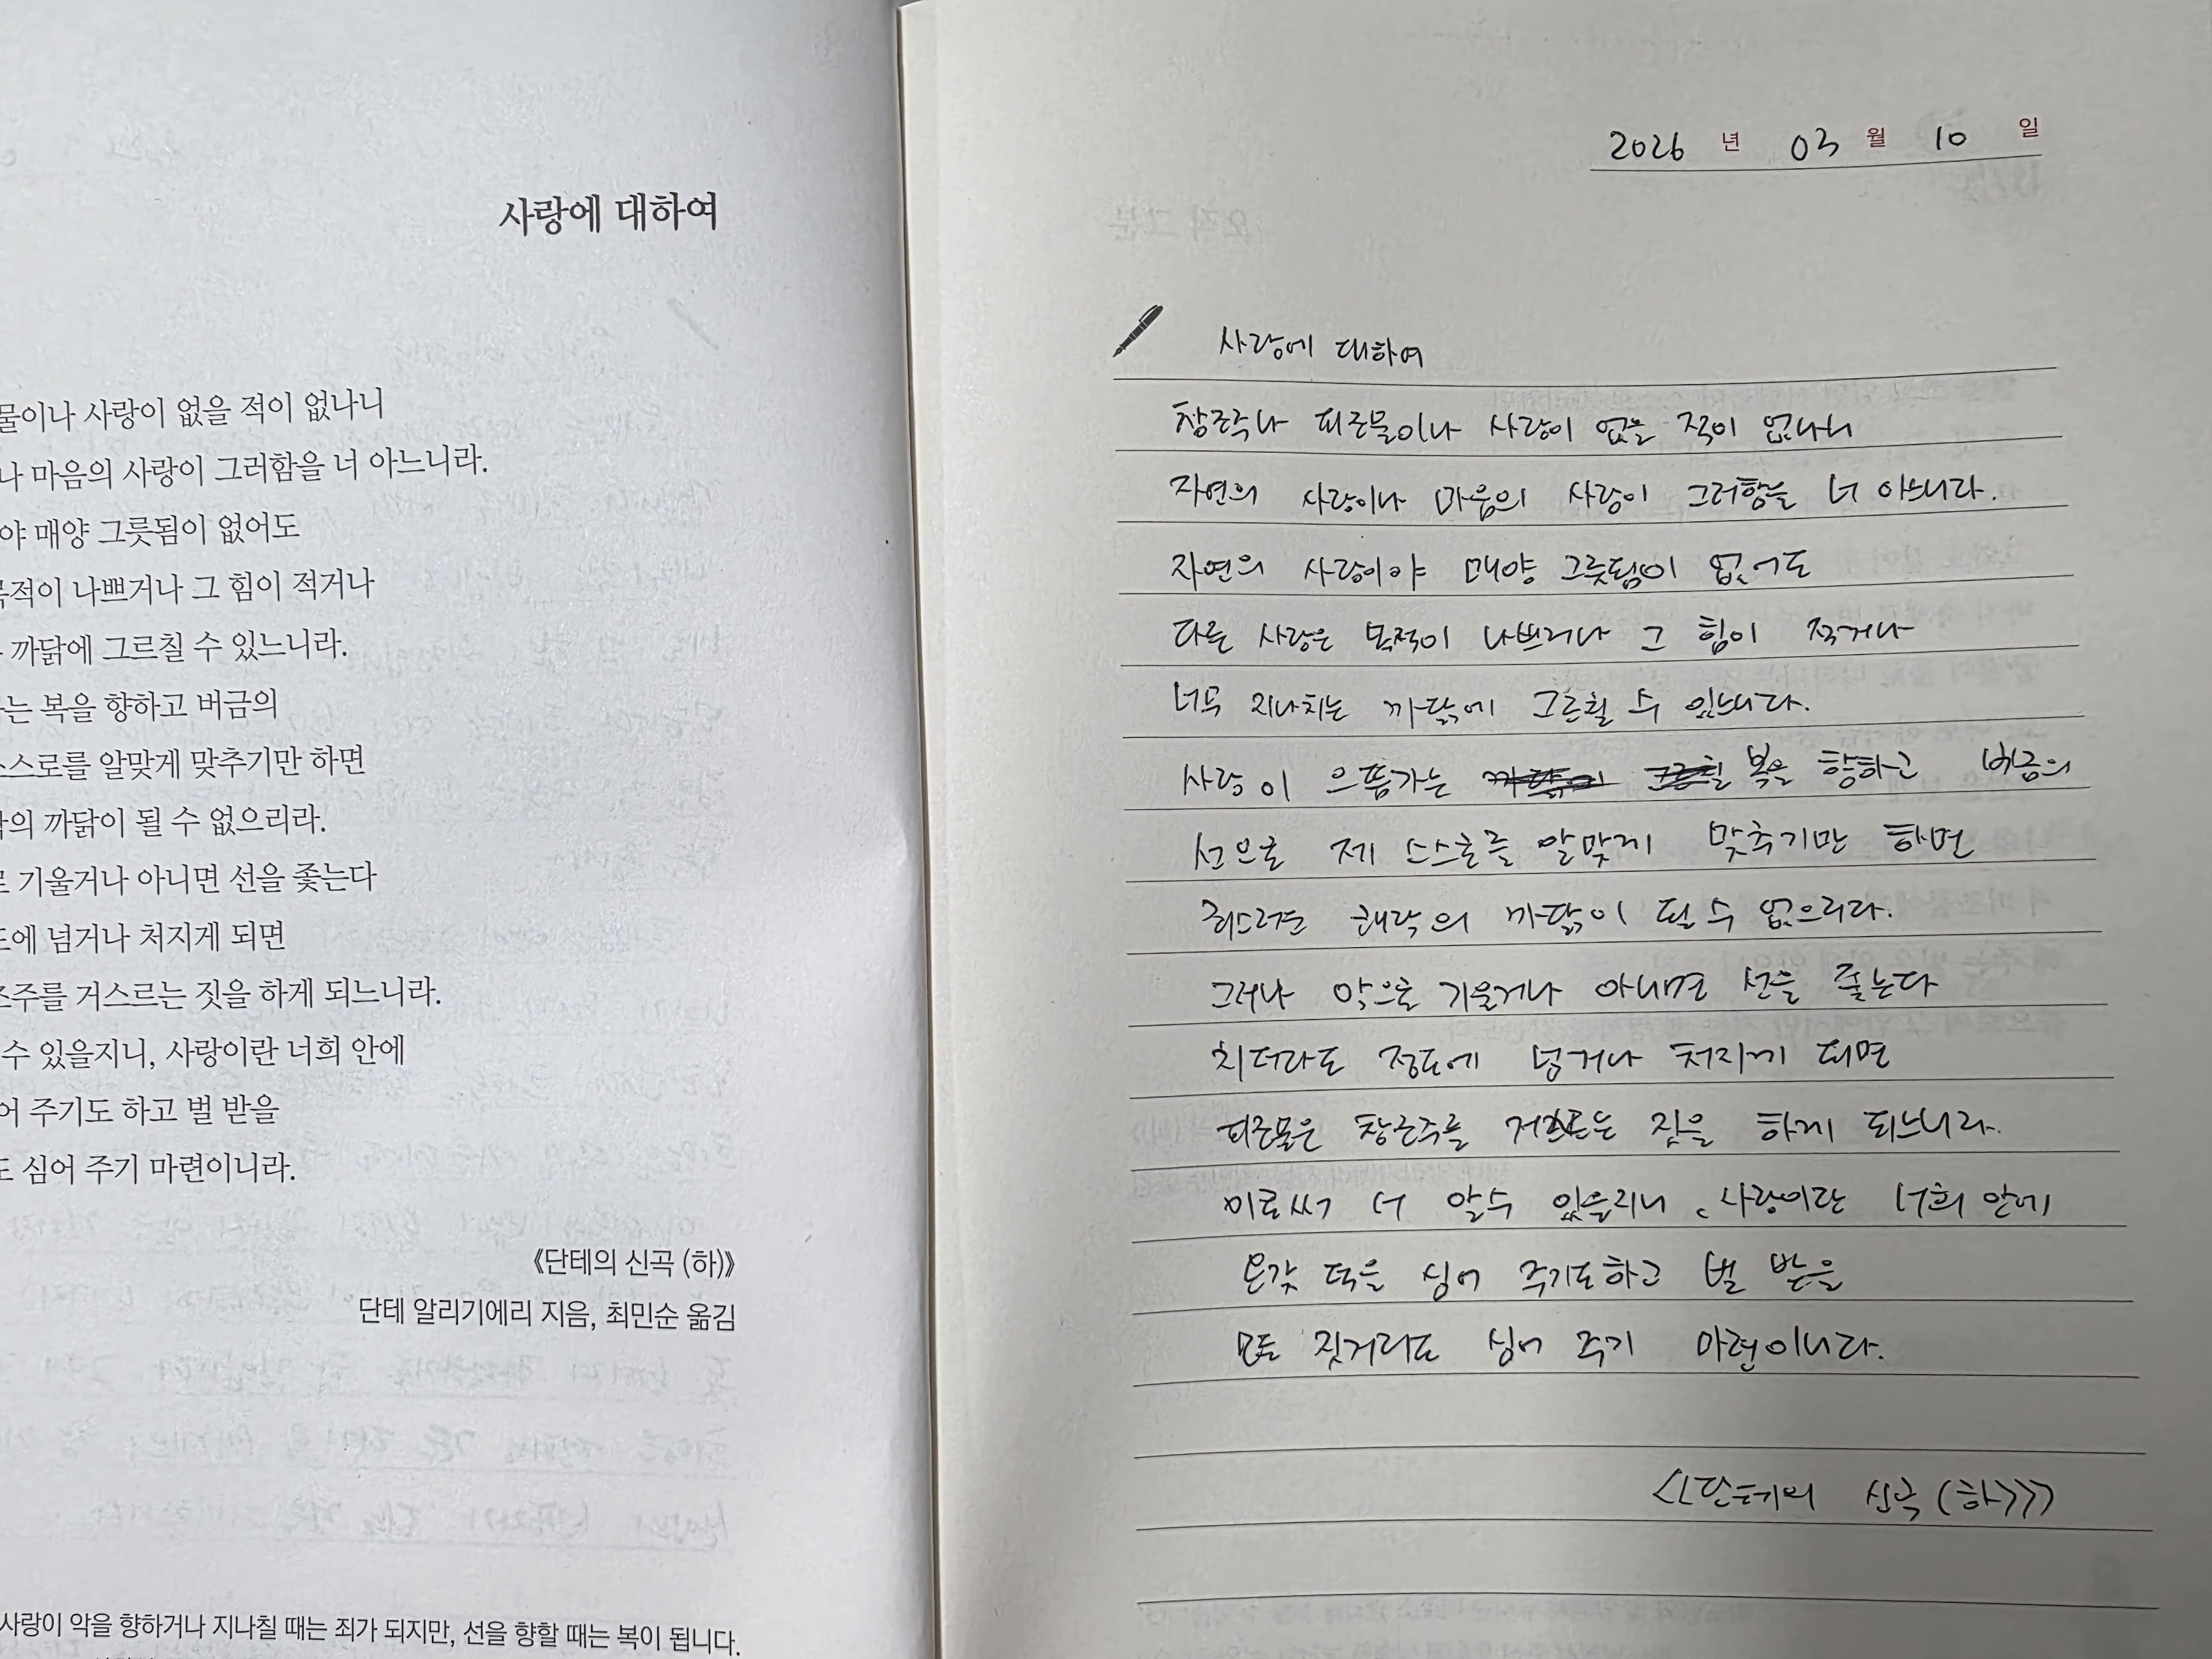 사랑에 대하여
물이나 사랑이 없을 적이 없나니
나 마음의 사랑이 그러함을 너 아느니라.
야 매양 그릇됨이 없어도
목적이 나쁘거나 그 힘이 적거나
까닭에 그르칠 수 있느니라.
는 복을 향하고 버금의
스스로를 알맞게 맞추기만 하면
락의 까닭이 될 수 없으리라.
로 기울거나 아니면 선을 좇는다
도에 넘거나 처지게 되면
조주를 거스르는 짓을 하게 되느니라.
수 있을지니, 사랑이란 너희 안에
어 주기도 하고 벌 받을
도 심어 주기 마련이니라.
《단테의 신곡 (하)》
단테 알리기에리 지음, 최민순 옮김
사랑이 악을 향하거나 지나칠 때는 죄가 되지만, 선을 향할 때는 복이 됩니다.
2026 년 03 월 10 일
사랑에 대하여
창조주나 피조물이나 사랑이 없을 적이 없나니
자연의 사랑이나 마음의 사랑이 그러함을 너 아느니라.
자연의 사랑이야 매양 그릇됨이 없어도
다른 사랑은 목적이 나쁘거나 그 힘이 적거나
너무 지나치는 까닭에 그르칠 수 있느니라.
사랑이 으뜸가는 복을 향하고 버금의
선으로 제 스스로를 알맞게 맞추기만 하면
죄스러운 쾌락의 까닭이 될 수 없으리라.
그러나 악으로 기울거나 아니면 선을 좇는다
치더라도 정도에 넘거나 처지게 되면
피조물은 창조주를 거스르는 짓을 하게 되느니라.
이로써 너 알수 있을지니, 사랑이란 너희 안에
온갖 덕을 심어 주기도하고 벌 받을
모든 짓거리도 심어 주기 마련이니라.
<<단테의 신곡 (하)>>